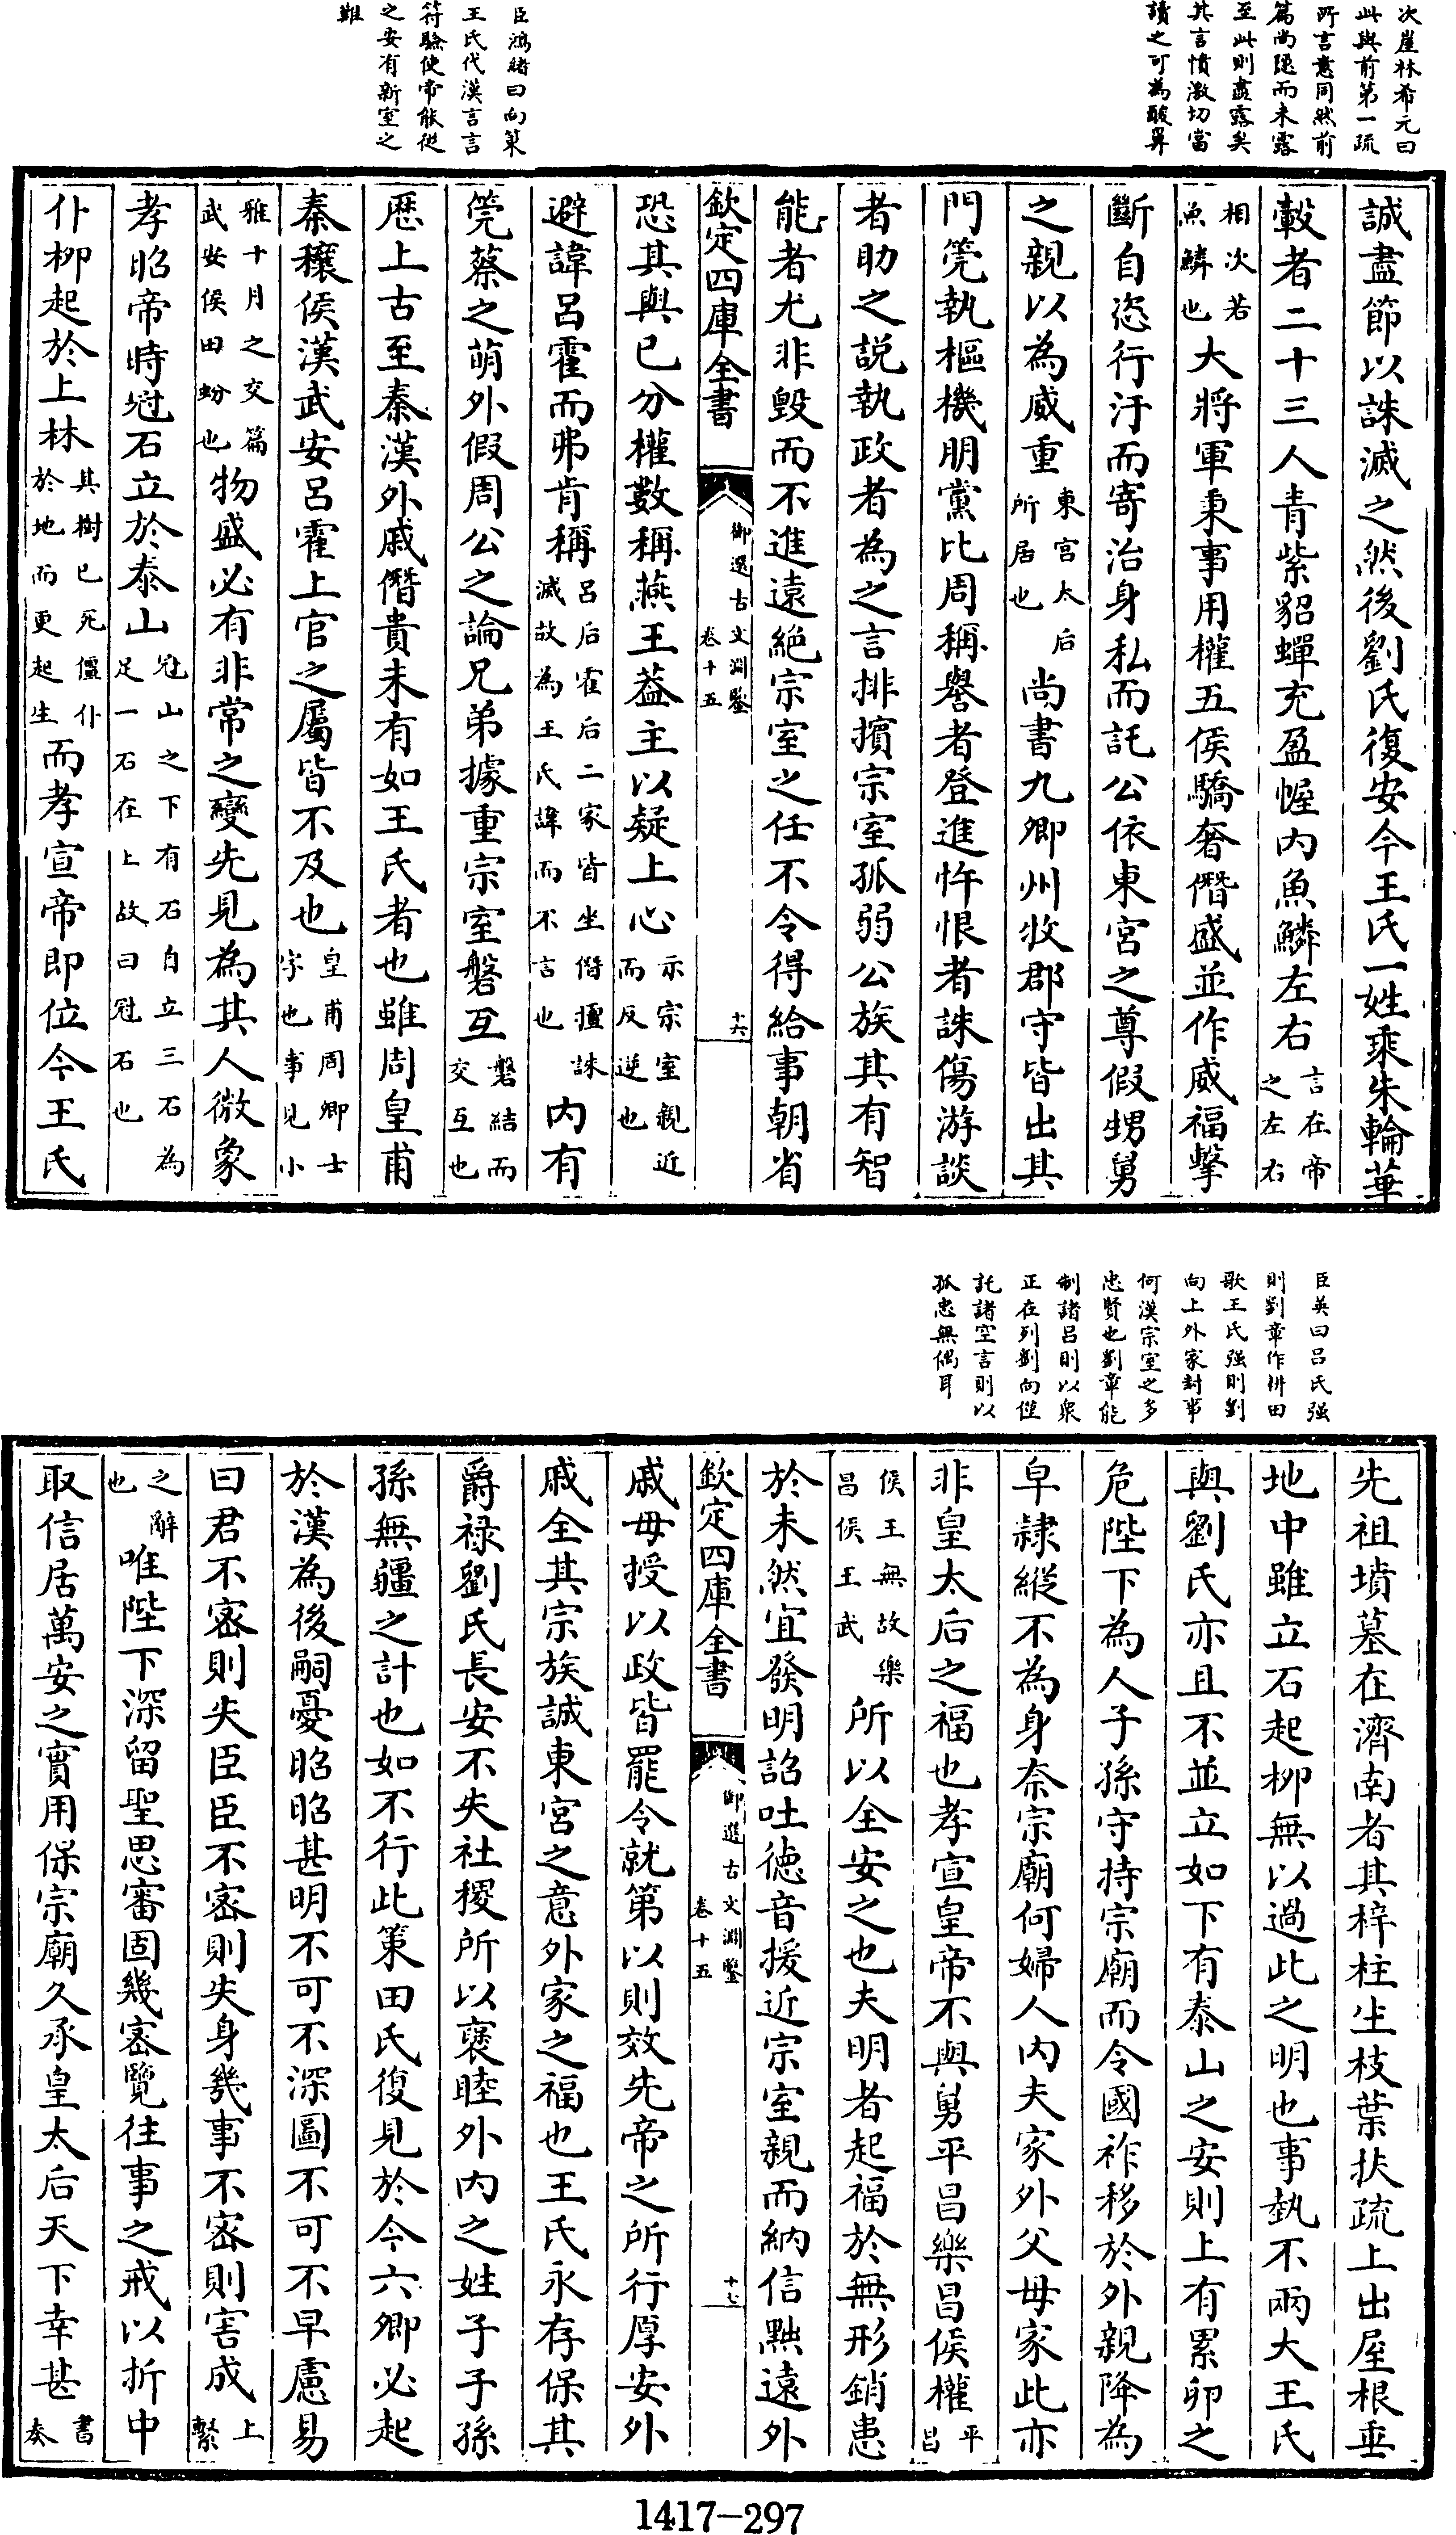 次崖林希元曰
此與前第一疏
所言意同然前
篇尚隱而未露
至此則盡露矣
其言憤激切當
讀之可為酸鼻
臣鴻緒曰向策
王氏代漢言言
符驗使帝能從
之安有新室之
難
誠盡節以誅滅之然後劉氏復安今王氏一姓乘朱輪華
轂者二十三人青紫貂蟬充盈幄内魚鱗左右言在帝之左右
相次若魚鱗也大將軍秉事用權五侯驕奢僭盛並作威福擊
斷自恣行汙而寄治身私而託公依東宮之尊假甥舅
之親以為威重東宫太后所居也尚書九卿州牧郡守皆出其
門筦執樞機朋黨比周稱譽者登進忤恨者誅傷游談
者助之説執政者為之言排擯宗室孤弱公族其有智
能者尤非毀而不進遠絶宗室之任不令得給事朝省
欽定四庫全書
御選古文淵鑒
卷十五
十六
恐其與已分權數稱燕王葢主以疑上心示宗室親近而反逆也
避諱呂霍而弗肯稱呂后霍后二家皆坐僭擅誅滅故為王氏諱而不言也内有
筦蔡之萌外假周公之論兄弟據重宗室磐互磐結而交互也
歴上古至秦漢外戚僭貴未有如王氏者也雖周皇甫
秦穰侯漢武安呂霍上官之屬皆不及也皇甫周卿士字也事見小
雅十月之交篇武安侯田蚡也物盛必有非常之變先見為其人微象
孝昭帝時冠石立於泰山冠山之下有石自立三石為足一石在上故曰冠石也
仆柳起於上林其樹已死僵仆於地而更起生而孝宣帝即位今王氏
臣英曰吕氏强
則劉章作耕田
歌王氏强則劉
向上外家封事
何漢宗室之多
忠賢也劉章能
制諸吕則以衆
正在列劉向僅
託諸空言則以
孤忠無偶耳
先祖墳墓在濟南者其梓柱生枝葉扶疏上出屋根垂
地中雖立石起柳無以過此之明也事埶不兩大王氏
與劉氏亦且不並立如下有泰山之安則上有累卵之
危陛下為人子孫守持宗廟而令國祚移於外親降為
皁隷縱不為身奈宗廟何婦人内夫家外父母家此亦
非皇太后之福也孝宣皇帝不與舅平昌樂昌侯權平昌
侯王無故樂昌侯王武所以全安之也夫明者起福於無形銷患
於未然宜發明詔吐德音援近宗室親而納信黜遠外
欽定四庫全書
御選古文淵鑒
卷十五
十七
戚毋授以政皆罷令就第以則效先帝之所行厚安外
戚全其宗族誠東宮之意外家之福也王氏永存保其
爵禄劉氏長安不失社稷所以褒睦外内之姓子子孫
孫無疆之計也如不行此策田氏復見於今六卿必起
於漢為後嗣憂昭昭甚明不可不深圖不可不早慮易
曰君不密則失臣臣不密則失身幾事不密則害成上繫
之辭也唯陛下深留聖思審固幾密覽往事之戒以折中
取信居萬安之實用保宗廟久承皇太后天下幸甚書奏
1417—297